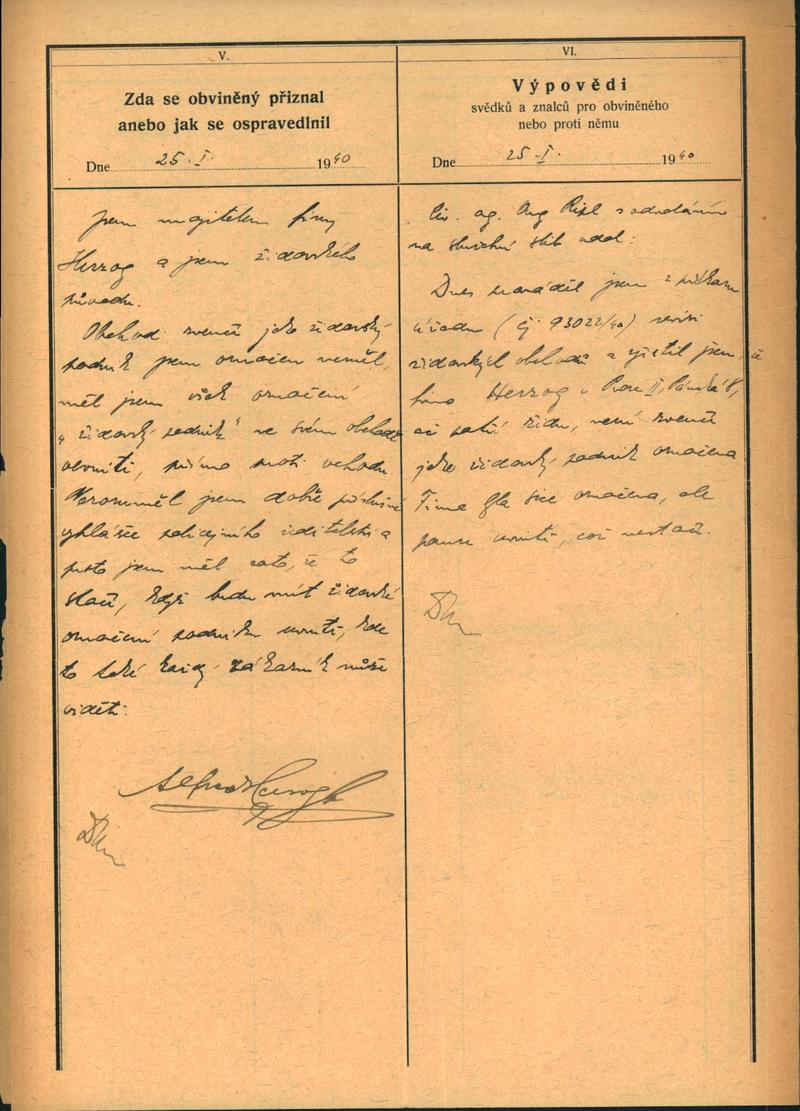 V.
Zda se obviněný přiznal
anebo jak se ospravedlnil
Dne 25. I. 1940
Jsem majitelem firmy
Herzog a jsem židovského
původu.
Obchod zvenčí jako židovský
podnik jsem označen neměl,
měl jsem však označení
„židovský podnik" ve svém obchodě
uvnitř, přímo proti vchodu.
Nerozuměl jsem dobře příslušné
vyhlášce policejního ředitelství a
proto jsem měl zato, že to
stačí, když budu mít židovské
označení podniku uvnitř, kde
to také každý zákazník může
viděti.
Alfred Herzog
VI.
Výpovědi
svědků a znalců pro obviněného
nebo proti němu
Dne 25. I. 1940
Civ. ag. s odvoláním
na služební slib udal:
Dnes prováděl jsem z příkazu
úřadu (čj 93022/40) revisi
židovských obchodů a zjistil jsem, že
firma Herzog v Praze II, 8,
ač patří židu, není zvenčí
jako židovský podnik označena
Firma byla sice označena, ale
pouze uvnitř, což nestačí.